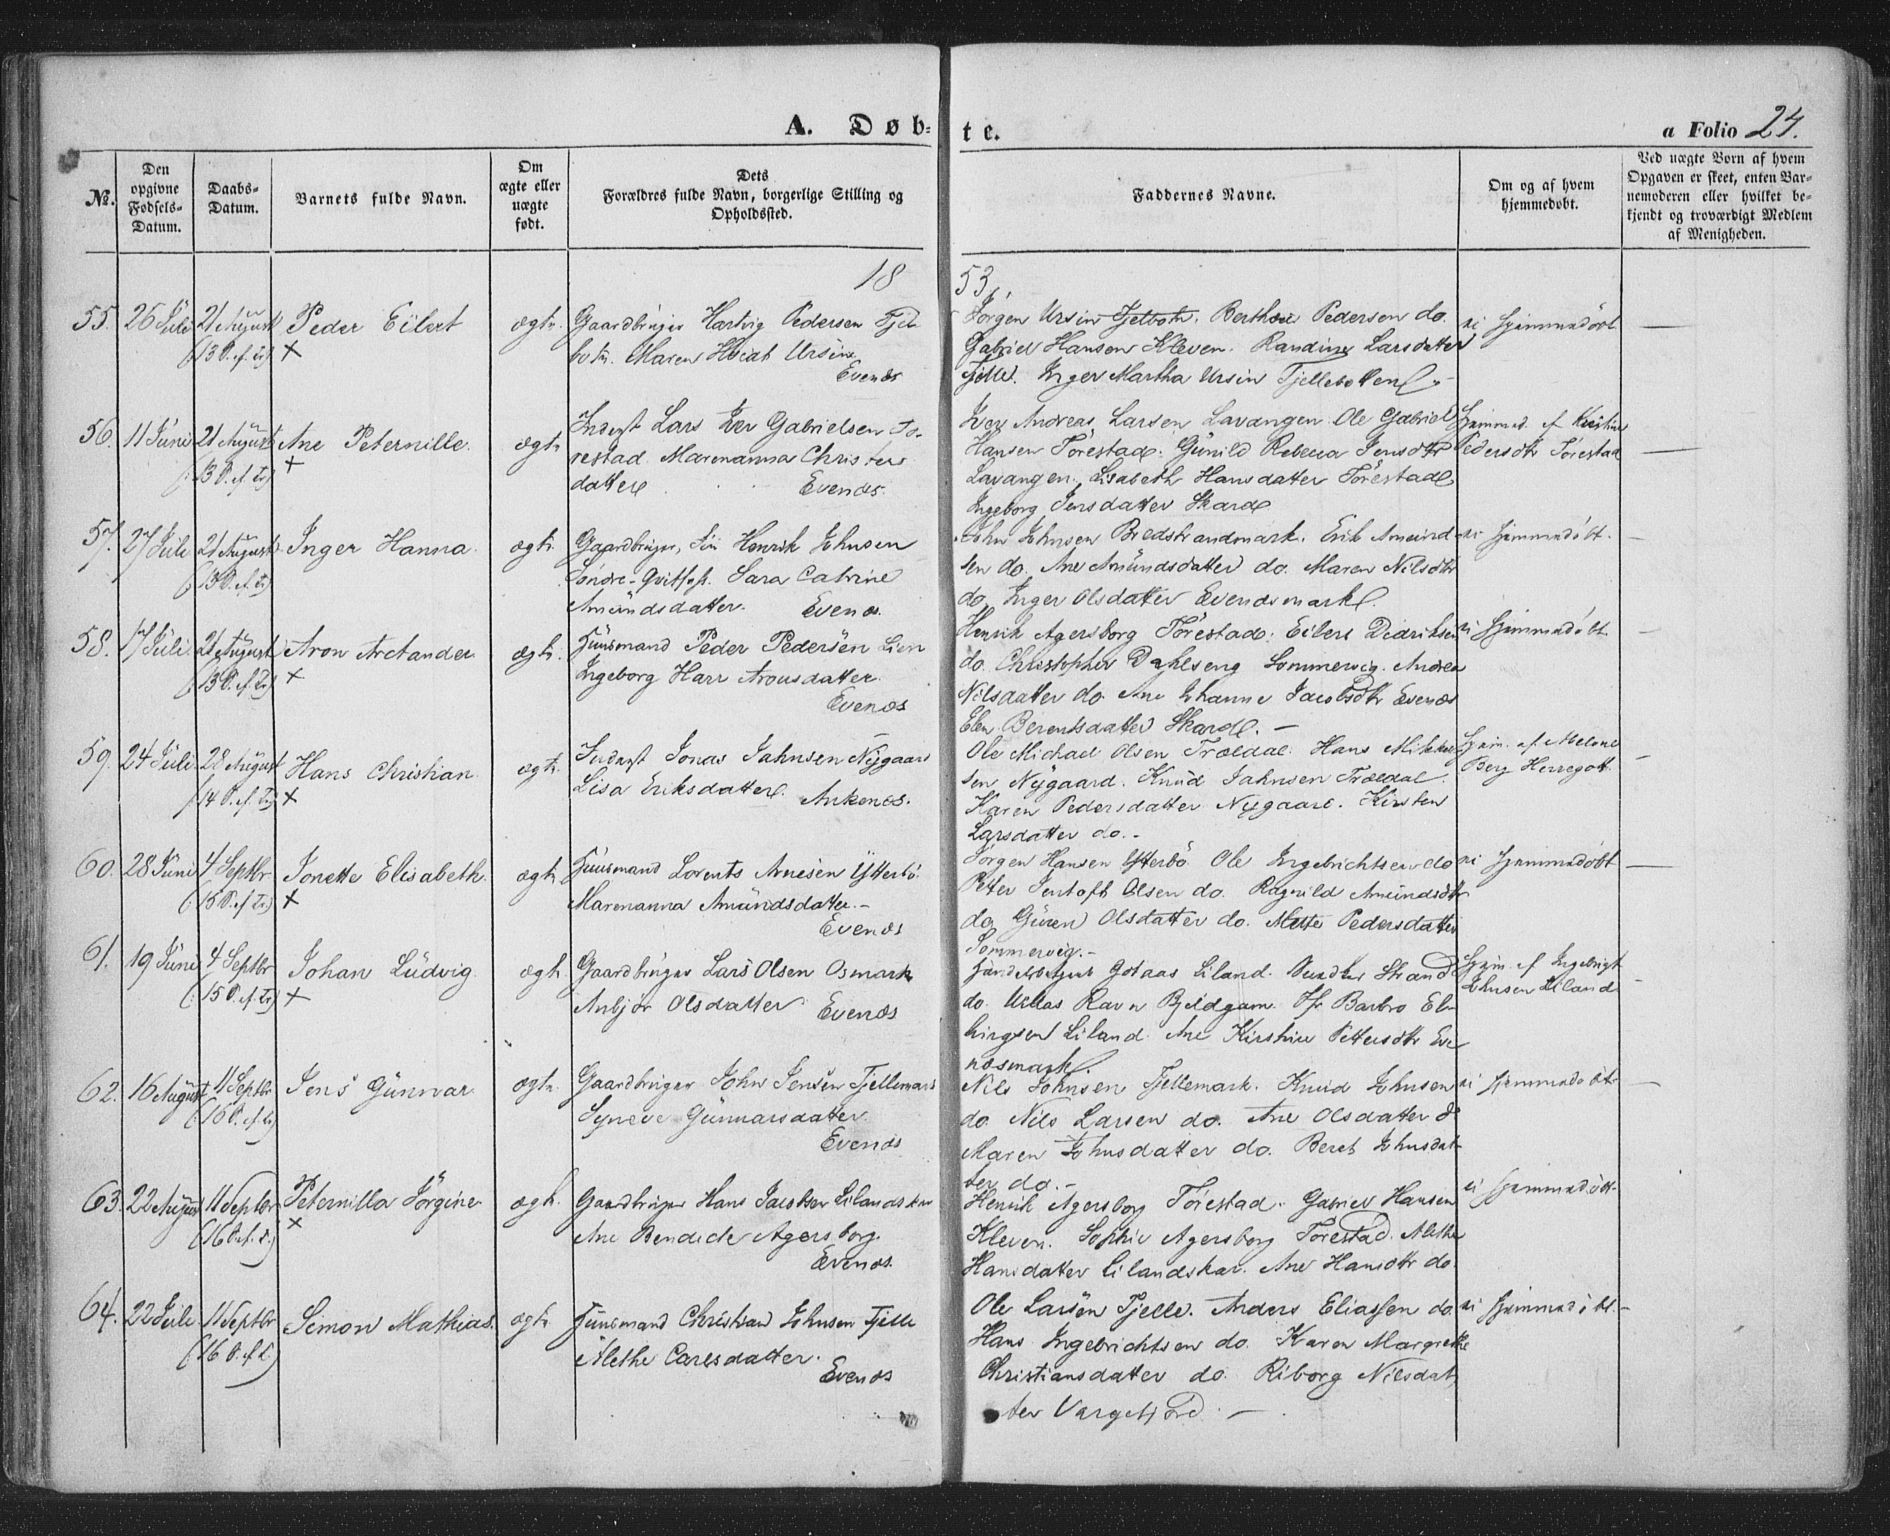 A. Døb-
te.
a Folio 24.
No.
Den opgivne Fødsels-Datum.
Daabs-Datum.
Barnets fulde Navn.
Om ægte eller uægte født.
Dets Forældres fulde Navn, borgerlige Stilling og Opholdssted.
Faddernes Navne.
Om og af hvem hjemmedøbt.
Ved uægte Børn af hvem Opgaven er skeet, enten Barnemoderen eller hvilket bekjendt og troværdigt Medlem af Menigheden.
18
53.
55. 26 Juli 21 August Peder Eilert ægte. Gaardbruger Hartvig Pedersen Fjel-
(13 S. ef. Tr) × botn. Maren Hveidt Ursin.
Evenæs
Jørgen Ursin Fjelbotn. Berthea Pedersen do. ei hjemmedøbt —
Gabriel Hansen Kleven. Randine Larsdatter
Fjelle. Inger Martha Ursin Fjellebotten
56. 11 Juni 21 August Ane Peternille. ægte Inderst Lars Iver Gabrielsen To-
(13 S. ef. Tr) × restad Marenanna Christens
datter Evenæs.
Iver Andreas Larsen Lavangen Ole Gabriel Hjemmed. af Kirstine
Hansen Tørestad. Gunild Rebecca Jensdtr Pedersdtr Tørestad —
Lavangen. Lisabeth Hansdatter Tørestad
Ingeborg Jensdatter Skard
57. 27 Juli 21 August Inger Hanna ægte. Gaardbruger, Henrik Johnsen
(13 S. ef. Tr) Søndre-Qvitfos. Sara Catrine
Amundsdatter. Evenæs.
John Johnsen Bredstrandmark. Erik Amund- ei hjemmedøbt. —
sen do. Ane Amundsdatter do. Maren Nilsdtr
do Inger Olsdatter Evenæsmark.
58. 17 Juli 21 August Aron Arctander ægte. Huusmand Peder Pedersen Lien
(13 S. ef. Tr) × Ingeborg Harr Aronsdatter.
Evenæs
Henrik Agersborg Tørestad. Eilert Didriksen ei hjemmedøbt. —
do. Christopher Dahlseng Sommervig. Andrea
Nilsdatter do Ane Johanna Jacobsdtr Evenæs
Elen Berentsdatter Skard. —
59. 24 Juli 28 August Hans Christian ægte. Inderst Jonas Jahnsen Nygaard
(14 S. ef. Tr) × Lisa Eriksdatter. Ankenes.
Ole Michael Olsen Trældal. Hans Mikkel- Hjem. af Melene
sen Nygaard. Knud Jahnsen Trældal. Berg Herregott. —
Karen Pedersdatter Nygaard. Kirsten
Larsdatter do. —
60. 28 Juni 4 Septbr Jonette Elisabeth. ægte Huusmand Lorents Arnesen Ytterbø.
(15 S. ef. Tr) × Marenanna Amundsdatter. —
Evenæs
Jørgen Hansen Ytterbø. Ole Ingebrichtsen do ei hjemmedøbt —
Peter Jentoft Olsen do. Ragnild Amundsdtr
do. Guren Olsdatter do. Mette Pedersdatter
Sommervig. —
61. 19 Juni 4 Septbr Johan Ludvig ægte. Gaardbruger Lars Olsen Osmark
(15 S. ef. Tr) × Anbjør Olsdatter Evenæs
Handelsbetjent Gotaas Liland. Strand Hjem. af Ingebrigt
do. Ullas Ravn Bjeldgam. Jfr Barbro El- Johnsen Liland —
Liland. Ane Kirstine Pettersdtr Eve
næsmark.
62. 16 August 11 Septbr Jens Gunnar ægte. Gaardbruger John Jensen Fjellemark
(16 S. ef. Tr) Syneve Gunnarsdatter
Evenæs
Nils Johnsen Fjellemark. Knud Johnsen ei hjemmedøbt —
do. Nils Larsen do. Ane Olsdatter do
Maren Johnsdatter do. Beret Johnsdat-
ter do. —
63. 22 August 11 Septbr Peternilla Jørgine ægte. Gaardbruger Hans Jacobsen Lilandskar
(16 S. ef. Tr.) × Ane Bendicte Agersborg.
Evenæs
Henrik Agersborg Tørestad. Gabriel Hansen ei hjemmedøbt
Kleven. Sophie Agersborg Tørestad. Alethe
Hansdatter Lilandskar. Ane Hansdtr do
64. 22 Juli 11 Septbr Simon Mathias. ægte Huusmand Christian Johnsen Fjelle
(16 S. ef. Tr) Alethe Carlsdatter.
Evenæs
Ole Larsen Fjelle. Anders Eliassen do. ei hjemmedøbt. —
Hans Ingebrichtsen do. Karen Margrethe
Christiansdatter do. Riborg Nilsdat
ter Vargefjord. —